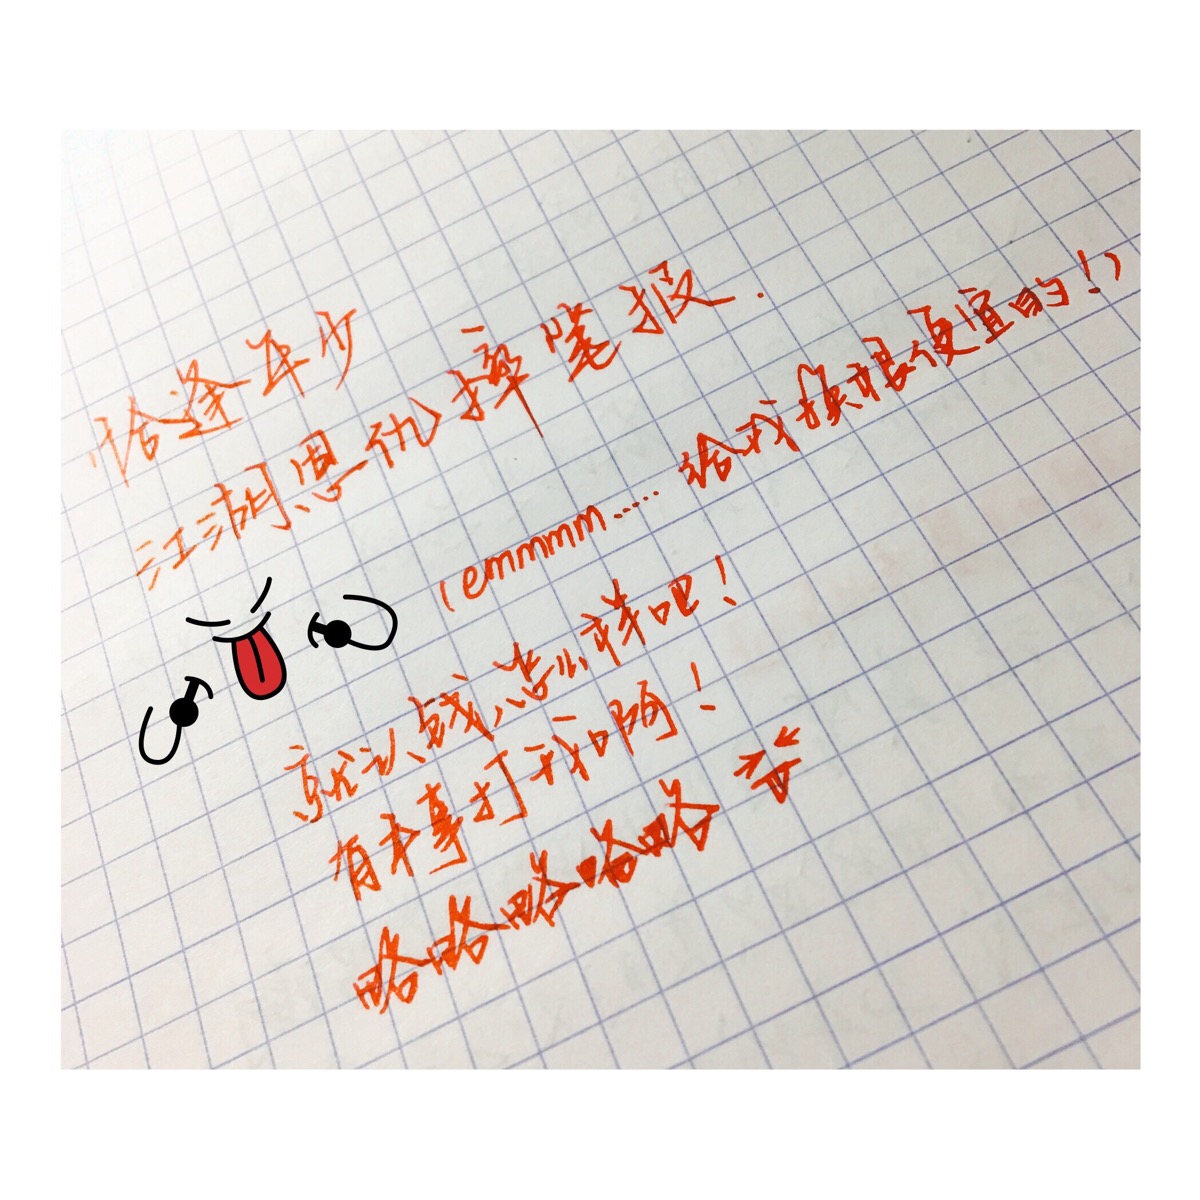 恰逢年少
江湖恩仇摔笔报.
(emmmm……给我换根便宜的!)
就认钱怂小样吧!
有本事打我啊!
略略略略略